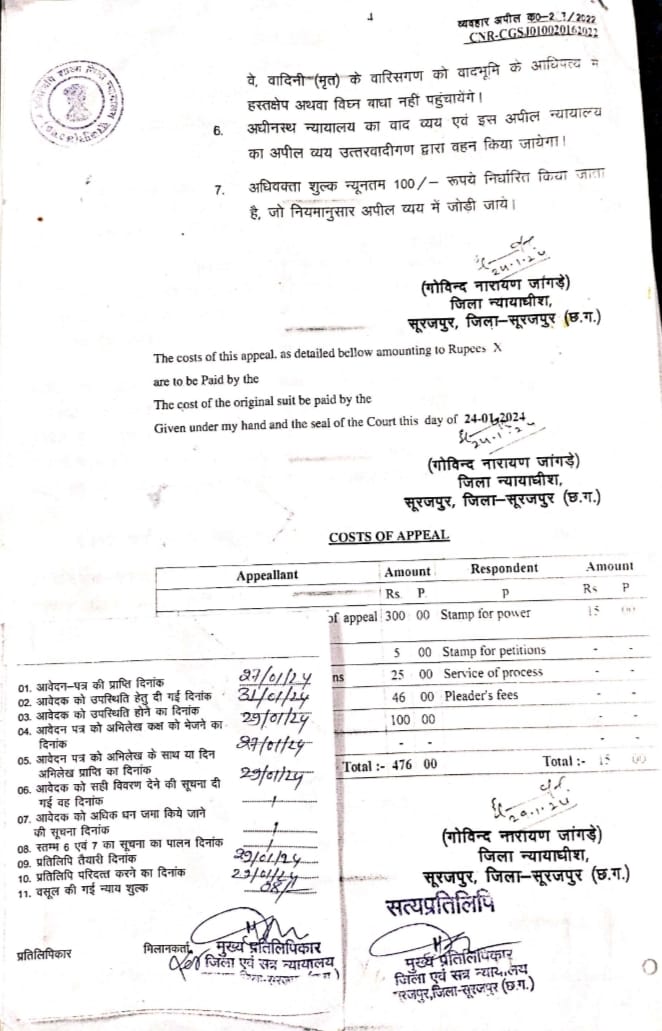 व्यवहार अपील क्र0-2 /2022
CNR-CGSJ010020162022
वे, वादिनी (मृत) के वारिसगण को वादभूमि के आधिपत्य में
हस्तक्षेप अथवा विघ्न बाधा नहीं पहुंचायेंगे।
6. अधीनस्थ न्यायालय का वाद व्यय एवं इस अपील न्यायालय
का अपील व्यय उत्तरवादीगण द्वारा वहन किया जायेगा।
7. अधिवक्ता शुल्क न्यूनतम 100/- रूपये निर्धारित किया जाता
है, जो नियमानुसार अपील व्यय में जोड़ी जाये।
24.1.24
(गोविन्द नारायण जांगड़े)
जिला न्यायाधीश,
सूरजपुर, जिला-सूरजपुर (छ.ग.)
The costs of this appeal, as detailed bellow amounting to Rupees X
are to be Paid by the
The cost of the original suit be paid by the
Given under my hand and the seal of the Court this day of 24-01-2024
24.1.24
(गोविन्द नारायण जांगड़े)
जिला न्यायाधीश,
सूरजपुर, जिला-सूरजपुर (छ.ग.)
COSTS OF APPEAL
Appeallant Amount Respondent Amount
Rs. P. P Rs P
of appeal 300 00 Stamp for power 15 00
5 00 Stamp for petitions - -
ns 25 00 Service of process - -
46 00 Pleader's fees - -
100 00 - -
- - - -
Total :- 476 00 Total :- 15 00
01. आवेदन-पत्र की प्राप्ति दिनांक 27/01/24
02. आवेदक को उपस्थिति हेतु दी गई दिनांक 31/01/24
03. आवेदक को उपस्थिति होने का दिनांक 29/01/24
04. आवेदन पत्र को अभिलेख कक्ष को भेजने का
दिनांक 27/01/24
05. आवेदन पत्र को अभिलेख के साथ या दिन
अभिलेख प्राप्ति का दिनांक 29/01/24
06. आवेदक को सही विवरण देने की सूचना दी
गई वह दिनांक
07. आवेदक को अधिक धन जमा किये जाने
की सूचना दिनांक
08. स्तम्भ 6 एवं 7 का सूचना का पालन दिनांक
09. प्रतिलिपि तैयारी दिनांक 29/01/24
10. प्रतिलिपि परिदत्त करने का दिनांक 29/01/24
11. वसूल की गई न्याय शुल्क 08/-
(गोविन्द नारायण जांगड़े)
जिला न्यायाधीश,
सूरजपुर, जिला-सूरजपुर (छ.ग.)
सत्यप्रतिलिपि
प्रतिलिपिकार मिलानकर्ता मुख्य प्रतिलिपिकार
जिला एवं सत्र न्यायालय
मुख्य प्रतिलिपिकार
जिला एवं सत्र न्यायालय
सूरजपुर, जिला-सूरजपुर (छ.ग.)